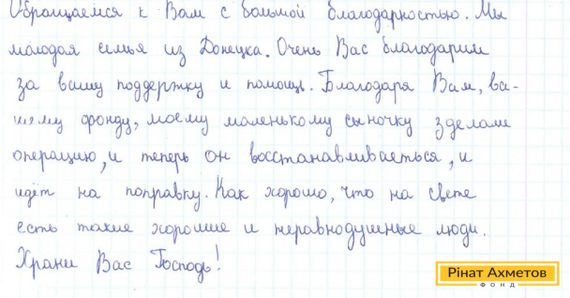 Обращаемся к Вам с большой благодарностью. Мы
молодая семья из Донецка. Очень Вас благодарим
за вашу поддержку и помощь. Благодаря Вам, ва-
шему фонду, моему маленькому сыночку зделали
операцию, и теперь он восстанавливается, и
идёт на поправку. Как хорошо, что на свете
есть такие хорошие и неравнодушные люди.
Храни Вас Господь!
Рінат Ахметов
ФОНД